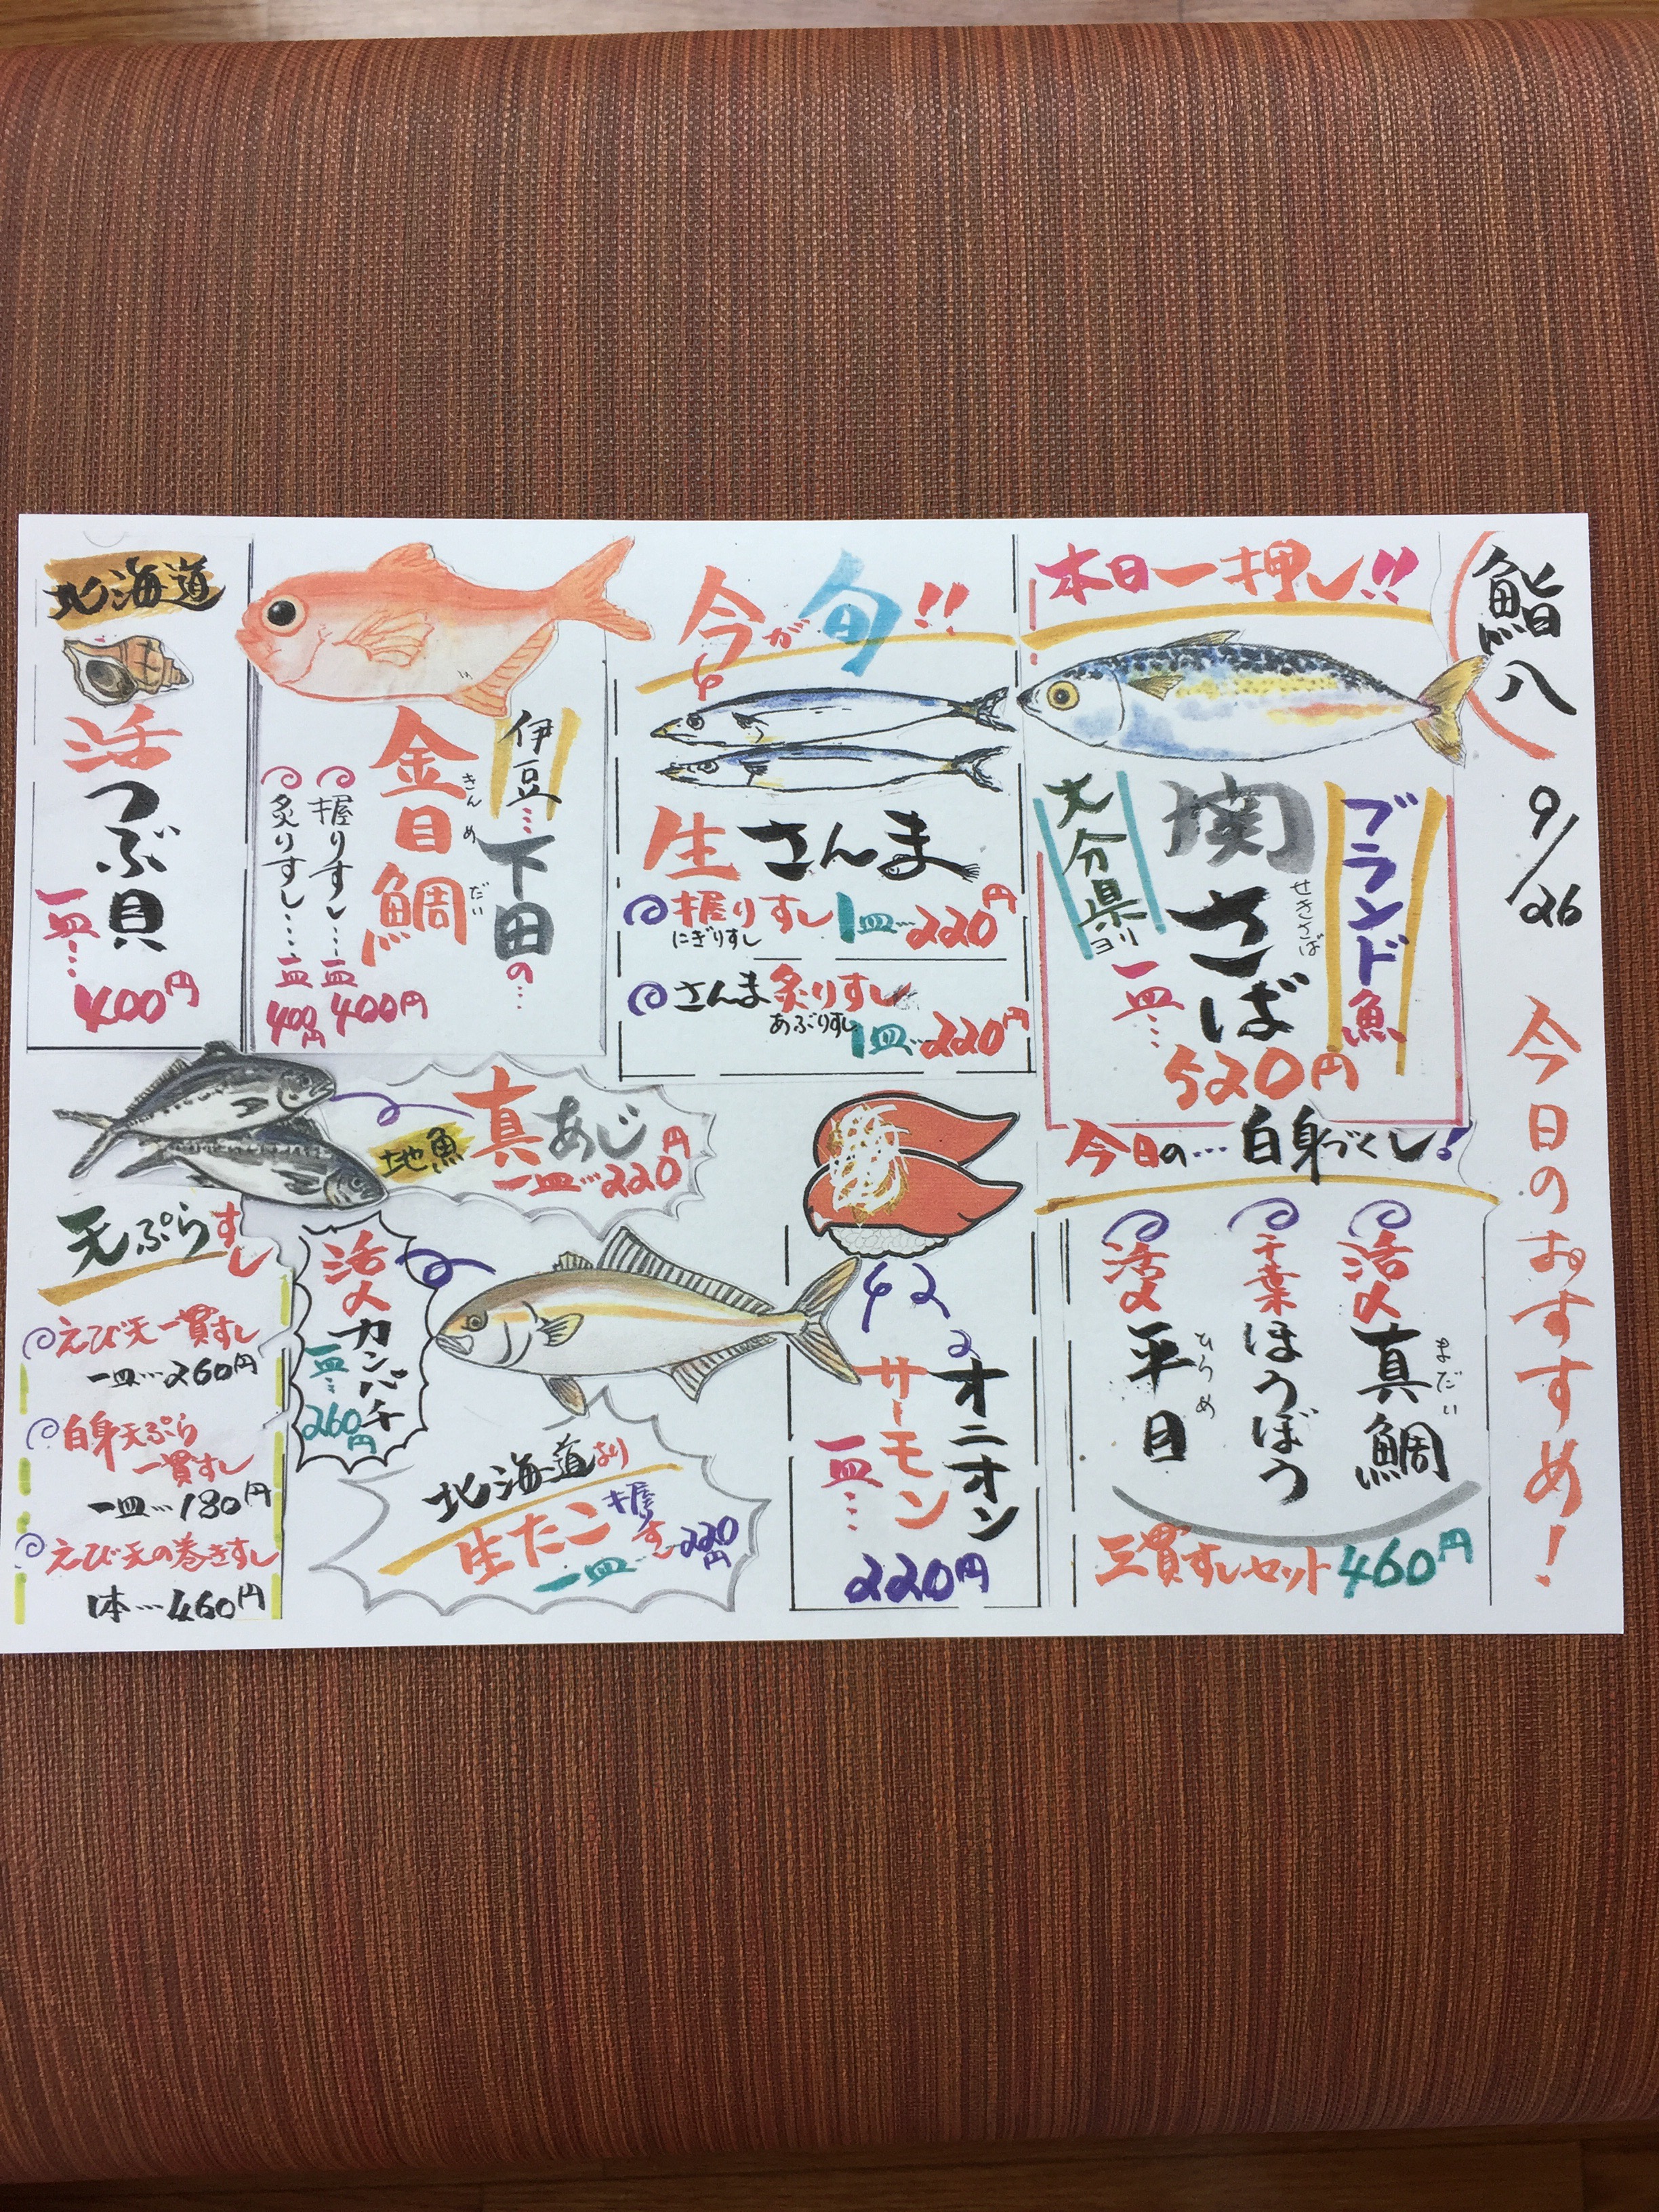 鮨八
9/26
今日のおすすめ!
本日一押し!!
ブランド魚
関さば
せきさば
大分県ヨリ
一皿…
520円
今が旬!!
生さんま
握りすし 1皿…220円
にぎりすし
さんま炙りすし
あぶりすし
1皿…220円
伊豆…下田の…
金目鯛
きんめだい
握りすし…一皿400円
炙りすし…一皿400円
北海道
活つぶ貝
一皿…
400円
今日の…白身づくし!
活〆真鯛
まだい
千葉ほうぼう
活〆平目
ひらめ
三貫すしセット460円
オニオン
サーモン
一皿…
220円
地魚
真あじ
一皿…220円
活〆カンパチ
一皿…
260円
北海道より
生たこ握すし
一皿…220円
天ぷらすし
えび天一貫すし
一皿…260円
白身天ぷら
一貫すし
一皿…180円
えび天の巻きすし
1本…460円